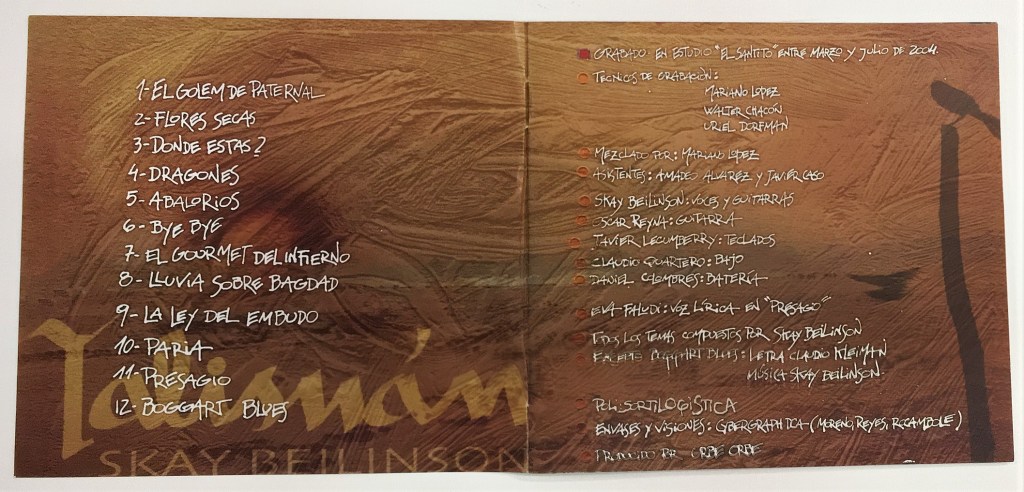 1- EL GOLEM DE PATERNAL
2- FLORES SECAS
3- DONDE ESTAS?
4- DRAGONES
5- ABALORIOS
6- BYE BYE
7- EL GOURMET DEL INFIERNO
8- LLUVIA SOBRE BAGDAD
9- LA LEY DEL EMBUDO
10- PARIA
11- PRESAGIO
12- BOGGART BLUES
Talismán
SKAY BEILINSON
GRABADO EN ESTUDIO "EL SANTITO" ENTRE MARZO Y JULIO DE 2004.
TECNICOS DE GRABACIÓN:
MARIANO LOPEZ
WALTER CHACÓN
URIEL DORFMAN
MEZCLADO POR: MARIANO LOPEZ
ASISTENTES: AMADEO ALVAREZ Y JAVIER CASO
SKAY BEILINSON: VOCES Y GUITARRAS
OSCAR REYNA: GUITARRA
JAVIER LECUMBERRY: TECLADOS
CLAUDIO QUARTERO: BAJO
DANIEL COLOMBRES: BATERÍA
EVA FALUDI: VOZ LÍRICA EN "PRESAGIO"
TODOS LOS TEMAS COMPUESTOS POR SKAY BEILINSON
EXCEPTO BOGGART BLUES: LETRA CLAUDIO KLEIMAN
MÚSICA SKAY BEILINSON
POLI SORTILOGÍSTICA
ENVASES Y VISIONES: CYBERGRAPHICA (MORENO, REYES, ROCAMBOLE)
PRODUCIDO POR ORBE ORBE